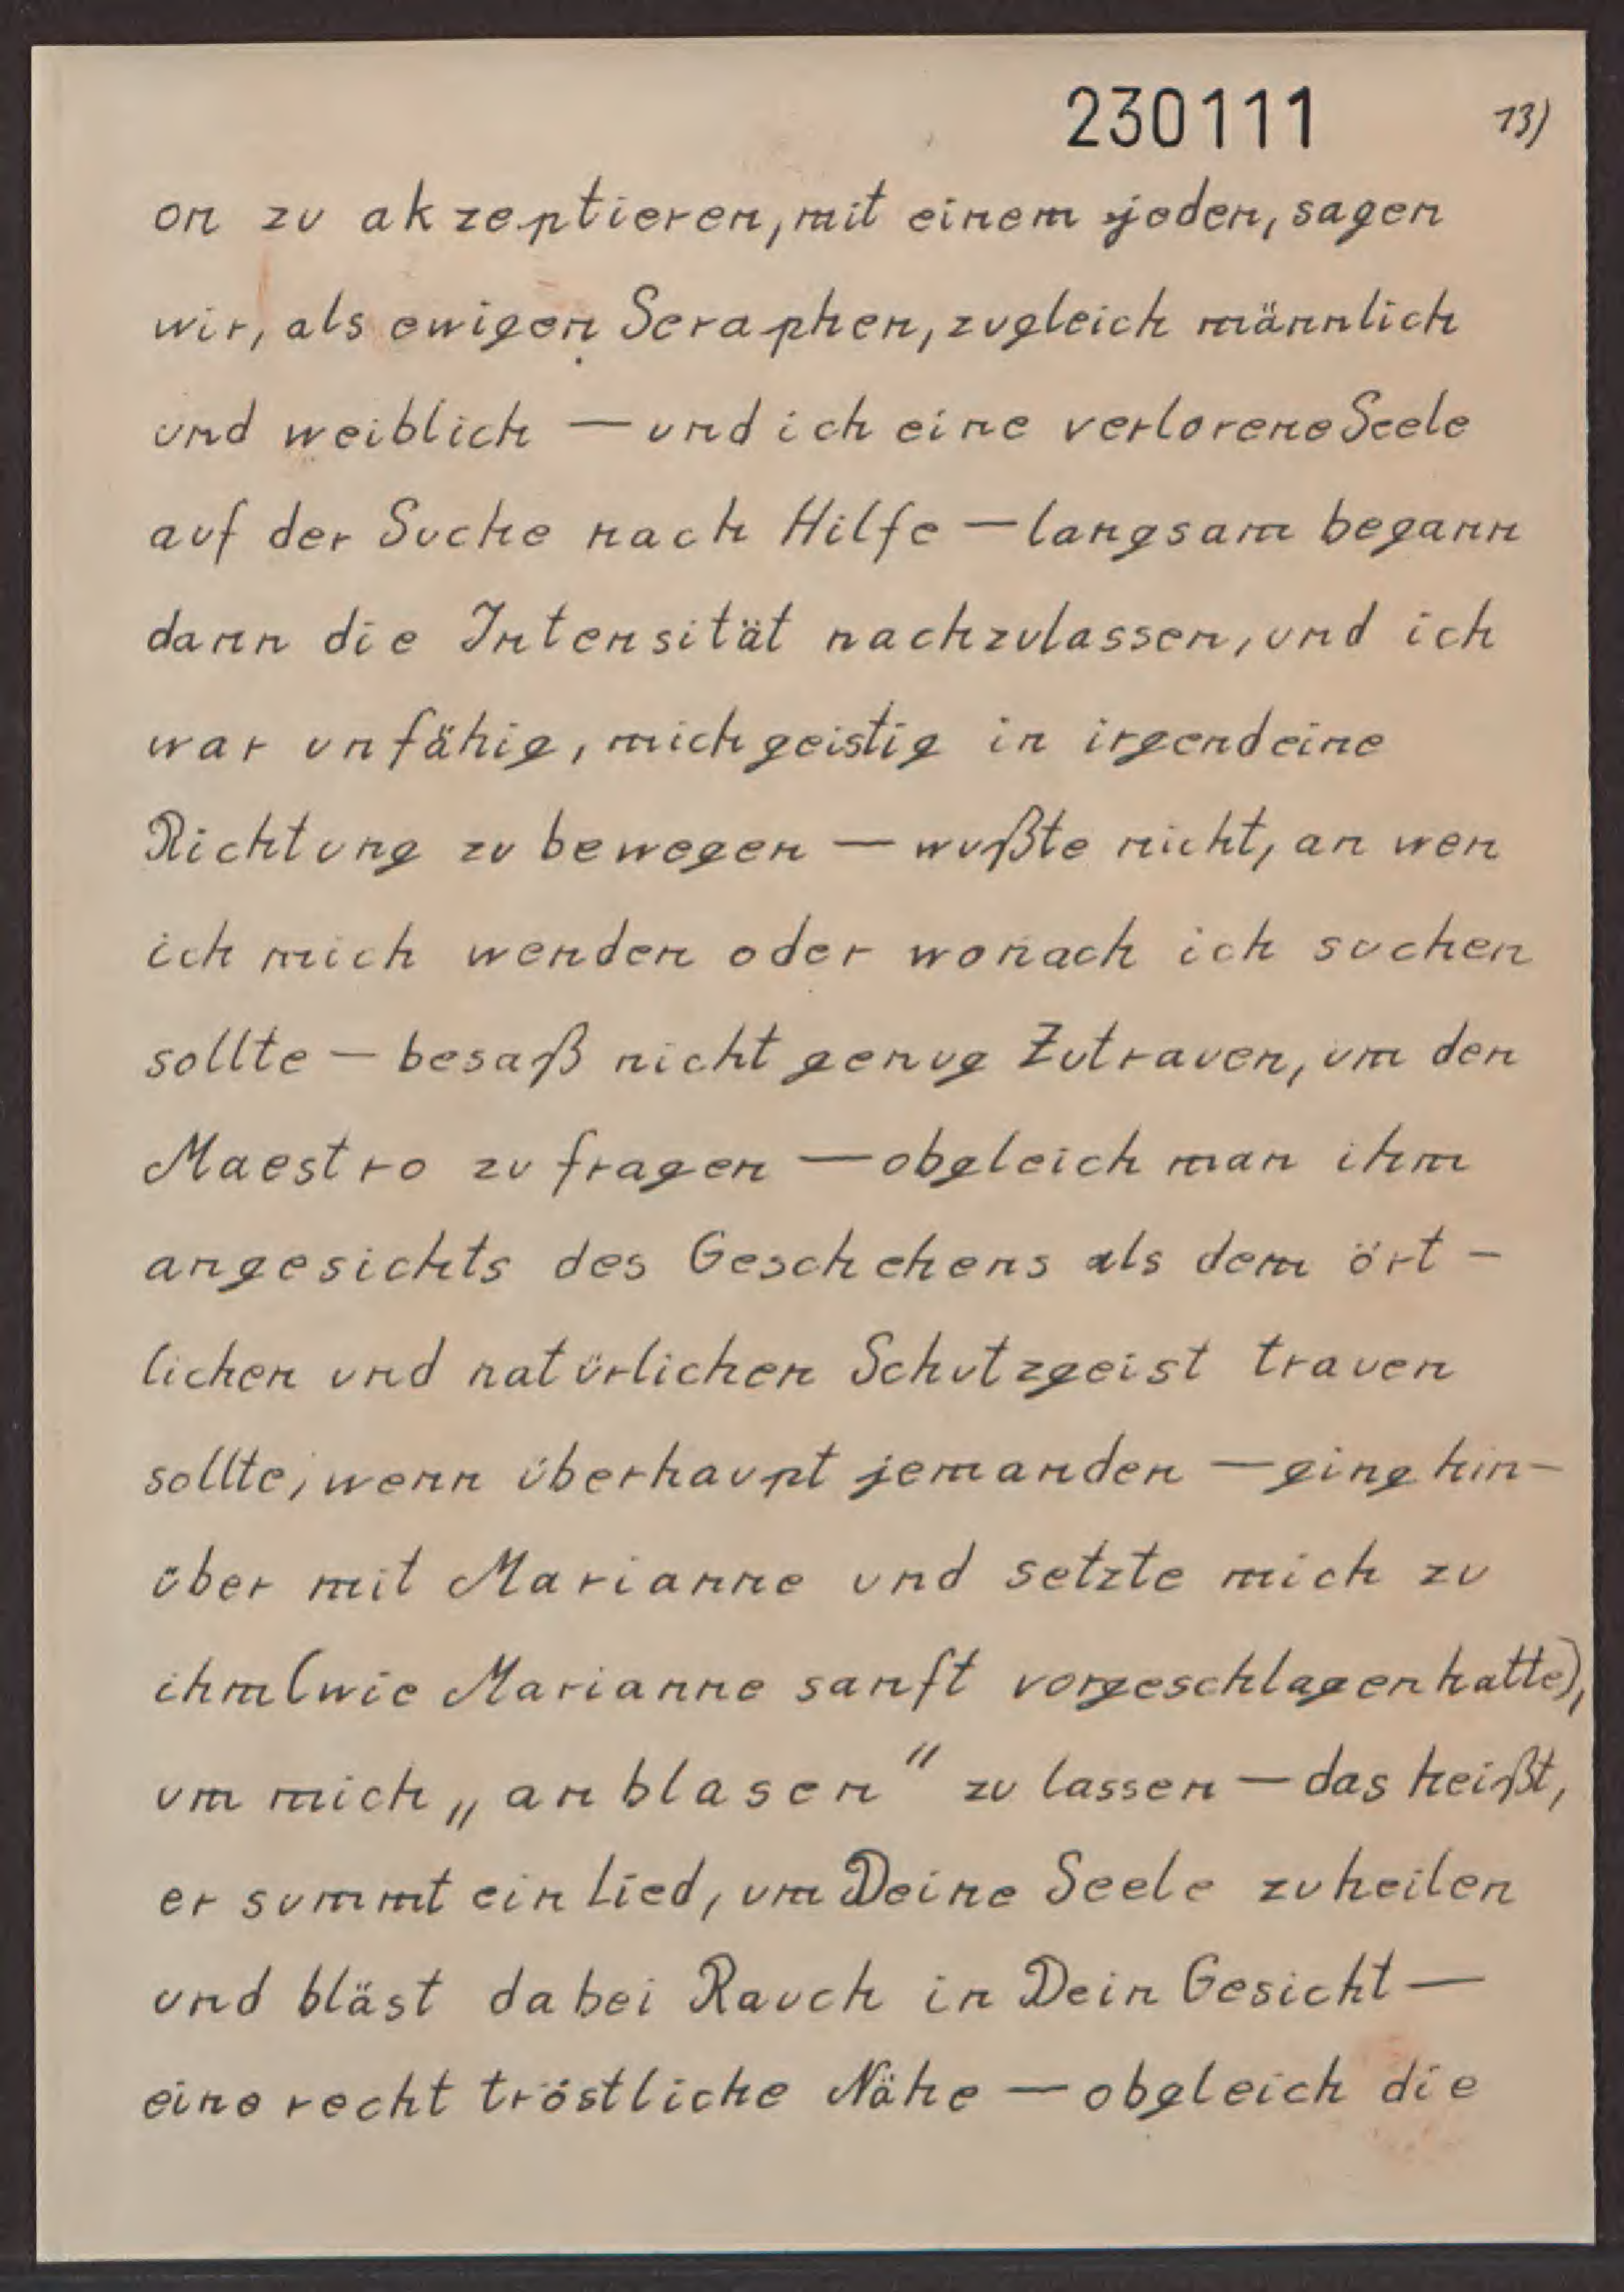 230111 13)
on zu akzeptieren, mit einem jeden, sagen
wir, als ewigen Seraphen, zugleich männlich
und weiblich — und ich eine verlorene Seele
auf der Suche nach Hilfe — langsam begann
dann die Intensität nachzulassen, und ich
war unfähig, mich geistig in irgendeine
Richtung zu bewegen — wußte nicht, an wen
ich mich wenden oder wonach ich suchen
sollte — besaß nicht genug Zutrauen, um den
Maestro zu fragen — obgleich man ihm
angesichts des Geschehens als dem ört-
lichen und natürlichen Schutzgeist trauen
sollte, wenn überhaupt jemanden — ging hin-
über mit Marianne und setzte mich zu
ihm (wie Marianne sanft vorgeschlagen hatte),
um mich „anblasen" zu lassen — das heißt,
er summt ein Lied, um Deine Seele zu heilen
und bläst dabei Rauch in Dein Gesicht —
eine recht tröstliche Nähe — obgleich die